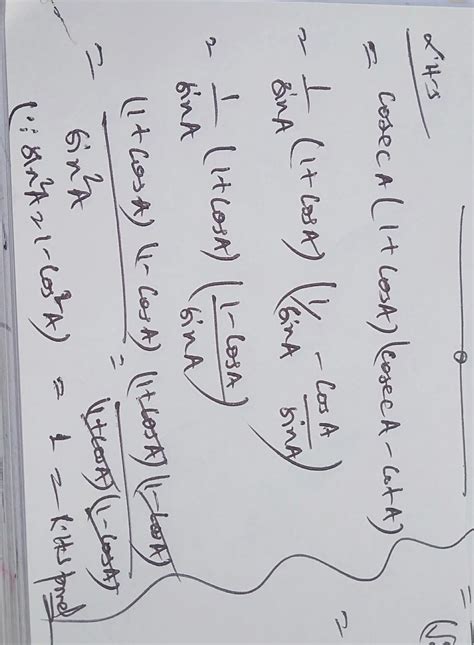 L.H.S
= cosecA (1+cosA) (cosecA - cotA)
= 1/sinA (1+cosA) (1/sinA - cosA/sinA)
= 1/sinA (1+cosA) (1-cosA/sinA)
= (1+cosA) (1-cosA)/sin²A = (1+cosA) (1-cosA)/(1+cosA) (1-cosA)
(∵ sin²A = 1-cos²A) = 1 = R.H.S
=
=